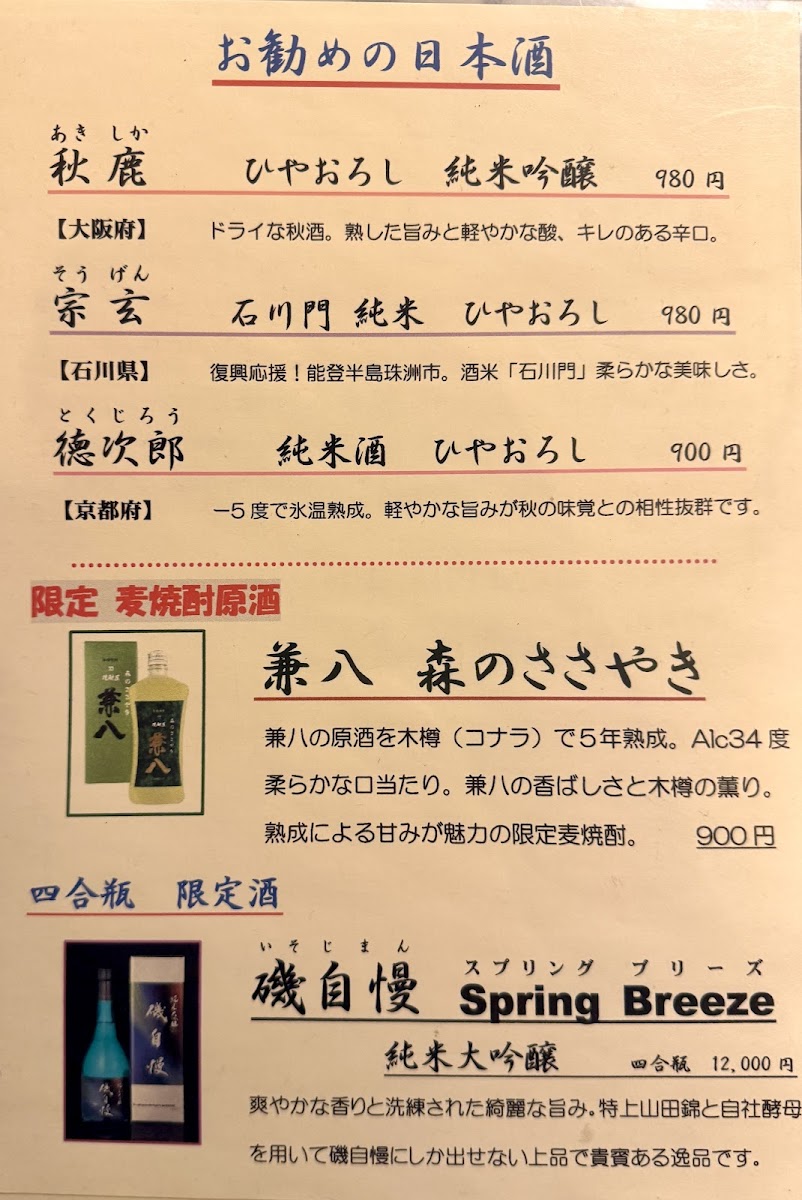 お勧めの日本酒
あき しか
秋鹿 ひやおろし 純米吟醸 980 円
【大阪府】 ドライな秋酒。熟した旨みと軽やかな酸、キレのある辛口。
そう げん
宗玄 石川門 純米 ひやおろし 980 円
【石川県】 復興応援！能登半島珠洲市。酒米「石川門」柔らかな美味しさ。
とくじろう
徳次郎 純米酒 ひやおろし 900 円
【京都府】 －5度で氷温熟成。軽やかな旨みが秋の味覚との相性抜群です。
限定 麦焼酎原酒
兼八 森のささやき
兼八の原酒を木樽（コナラ）で５年熟成。Alc34 度
柔らかな口当たり。兼八の香ばしさと木樽の薫り。
熟成による甘みが魅力の限定麦焼酎。 900円
兼八
兼八
四合瓶 限定酒
いそじまん スプリング ブリーズ
磯自慢 Spring Breeze
純米大吟醸 四合瓶 12,000 円
磯自慢
磯自慢
爽やかな香りと洗練された綺麗な旨み。特上山田錦と自社酵母
を用いて磯自慢にしか出せない上品で貴賓ある逸品です。